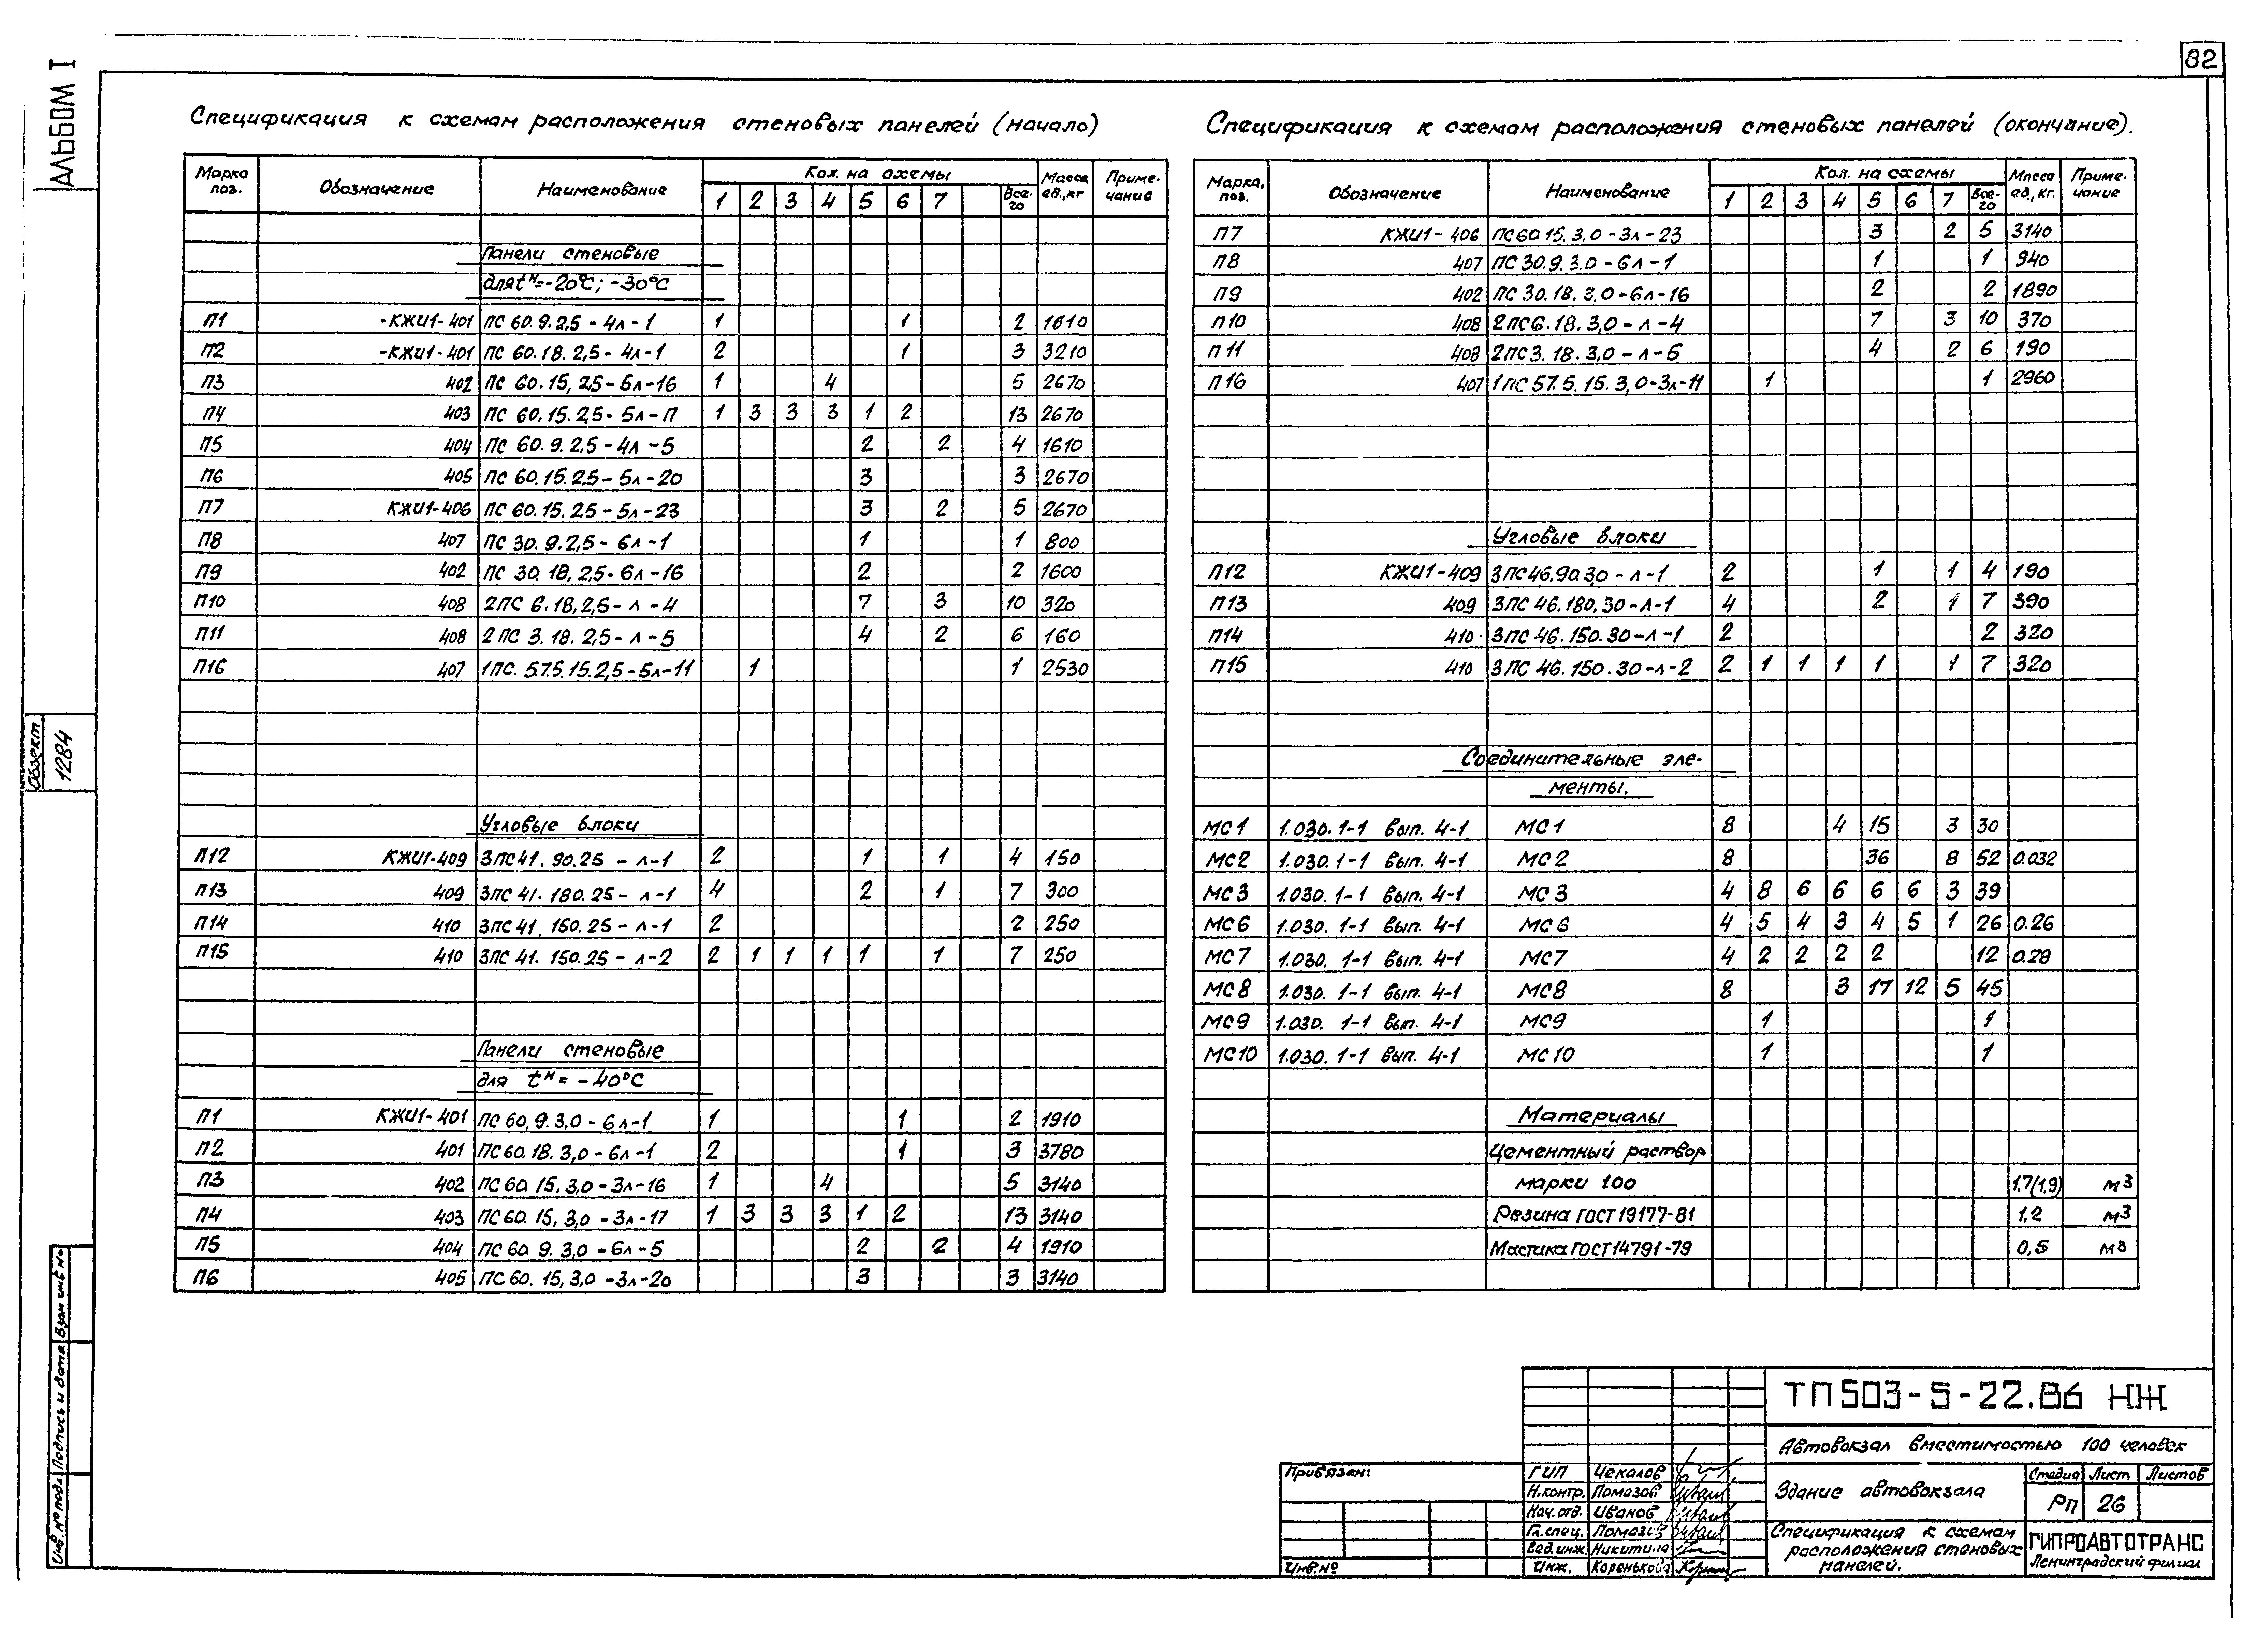 82
Альбом I
Объект
1284
Взам инв №
Подпись и дата
Инв. № подл.
Спецификация к схемам расположения стеновых панелей (начало)
Марка поз. Обозначение Наименование Кол. на схемы Масса ед., кг Приме-чание
1 2 3 4 5 6 7 Все-го
Панели стеновые
для tн=-20°С; -30°С
П1 -КЖИ1-401 ПС 60.9.2,5-4л-1 1 1 2 1610
П2 -КЖИ1-401 ПС 60.18.2,5-4л-1 2 1 3 3210
П3 402 ПС 60.15,25-5л-16 1 4 5 2670
П4 403 ПС 60.15.2,5-5л-П 1 3 3 3 1 2 13 2670
П5 404 ПС 60.9.2,5-4л-5 2 2 4 1610
П6 405 ПС 60.15.2,5-5л-20 3 3 2670
П7 КЖИ1-406 ПС 60.15.25-5л-23 3 2 5 2670
П8 407 ПС 30.9.2,5-6л-1 1 1 800
П9 402 ПС 30.18,2,5-6л-16 2 2 1600
П10 408 2ПС 6.18,2,5-л-4 7 3 10 320
П11 408 2ПС 3.18.2,5-л-5 4 2 6 160
П16 407 1ПС.57.5.15.2,5-5л-11 1 1 2530
Угловые блоки
П12 КЖИ1-409 3ПС41.90.25-л-1 2 1 1 4 150
П13 409 3ПС 41.180.25-л-1 4 2 1 7 300
П14 410 3ПС 41.150.25-л-1 2 2 250
П15 410 3ПС 41.150.25-л-2 2 1 1 1 1 1 7 250
Панели стеновые
для tн=-40°С
П1 КЖИ1-401 ПС 60,9.3,0-6л-1 1 1 2 1910
П2 401 ПС60.18.3,0-6л-1 2 1 3 3780
П3 402 ПС60.15.3,0-3л-16 1 4 5 3140
П4 403 ПС60.15,3,0-3л-17 1 3 3 3 1 2 13 3140
П5 404 ПС60.9.3,0-6л-5 2 2 4 1910
П6 405 ПС60.15,3,0-3л-20 3 3 3140
Спецификация к схемам расположения стеновых панелей (окончание).
Марка, поз. Обозначение Наименование Кол. на схемы Масса ед., кг. Приме-чание
1 2 3 4 5 6 7 Все-го
П7 КЖИ1-406 ПС60.15.3,0-3л-23 3 2 5 3140
П8 407 ПС 30.9.3.0-6л-1 1 1 940
П9 402 ПС 30.18.3,0-6л-16 2 2 1890
П10 408 2ПС6.18.3,0-л-4 7 3 10 370
П11 408 2ПС3.18.3,0-л-5 4 2 6 190
П16 407 1ПС57.5.15.3,0-3л-11 1 1 2960
Угловые блоки
П12 КЖИ1-409 3ПС46,90.30-л-1 2 1 1 4 190
П13 409 3ПС 46.180,30-л-1 4 2 1 7 390
П14 410 3ПС 46.150.30-л-1 2 2 320
П15 410 3ПС 46.150.30-л-2 2 1 1 1 1 1 7 320
Соединительные эле-
менты.
МС1 1.030.1-1 вып. 4-1 МС1 8 4 15 3 30
МС2 1.030.1-1 вып. 4-1 МС2 8 36 8 52 0.032
МС3 1.030.1-1 вып. 4-1 МС3 4 8 6 6 6 6 3 39
МС6 1.030.1-1 вып. 4-1 МС6 4 5 4 3 4 5 1 26 0.26
МС7 1.030.1-1 вып. 4-1 МС7 4 2 2 2 2 12 0.28
МС8 1.030.1-1 вып. 4-1 МС8 8 3 17 12 5 45
МС9 1.030.1-1 вып. 4-1 МС9 1 1
МС10 1.030.1-1 вып. 4-1 МС10 1 1
Материалы
Цементный раствор
марки 100 1,7(1,9) м3
Резина ГОСТ 19177-81 1,2 м3
Мастика ГОСТ 14791-79 0,5 м3
Привязан:
Инв.№
ГИП Чекалов
Н.контр. Помазов
Нач.отд. Иванов
Гл.спец. Помазов
Вед.инж. Никитина
Инж. Коренькова
ТП 503-5-22.86 НЖ
Автовокзал вместимостью 100 человек
Здание автовокзала
Стадия Лист Листов
РП 26
Спецификация к схемам
расположения стеновых
панелей.
ГИПРОАВТОТРАНС
Ленинградский филиал